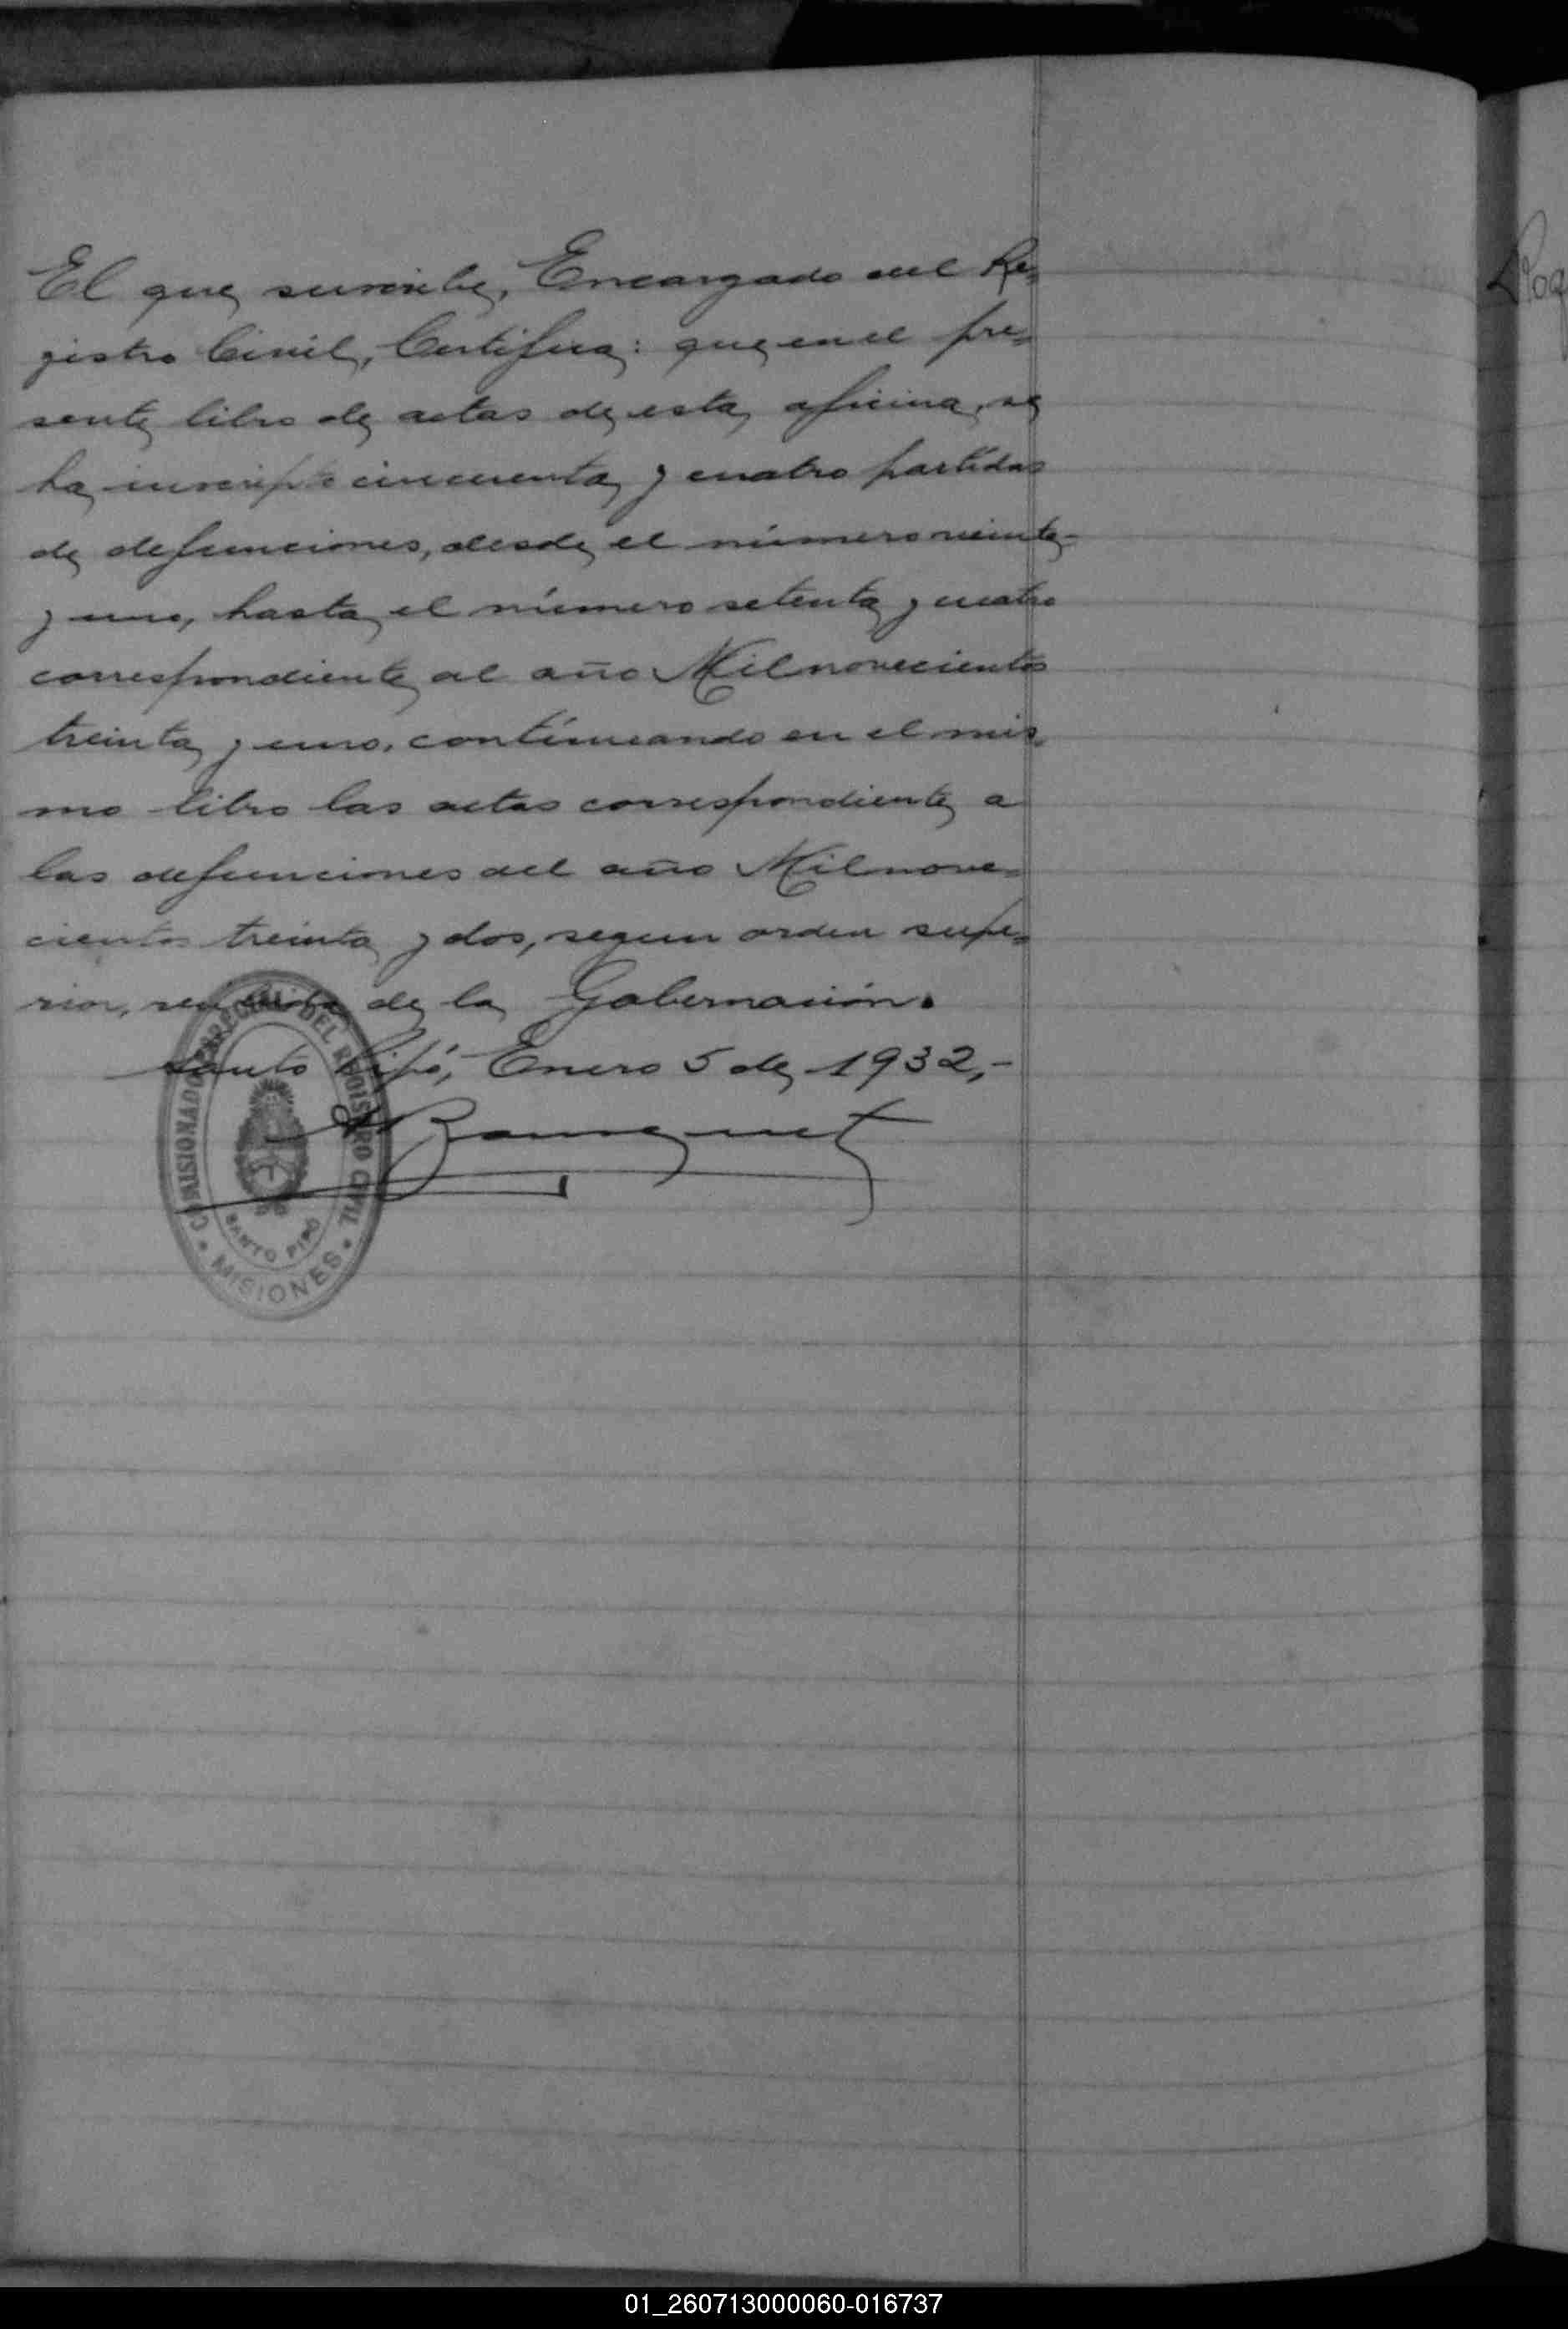 El que suscribe, Encargado del Re=
gistro Civil, Certifica: que en el pre=
sente libro de actas de esta oficina, se
ha inscripto cincuenta y cuatro partidas
de defunciones, desde el número veinte-
y uno, hasta el número setenta y cuatro
correspondiente al año Mil novecientos
treinta y uno, contínuando en el mis=
mo libro las actas correspondiente a
las defunciones del año Mil nove=
cientos treinta y dos, segun orden supe=
rior, de la Gobernación.
Santo Pipó, Enero 5 de 1932,-
COMISIONADO DEL REGISTRO CIVIL
SANTO PIPÓ
• MISIONES •
01_260713000060-016737